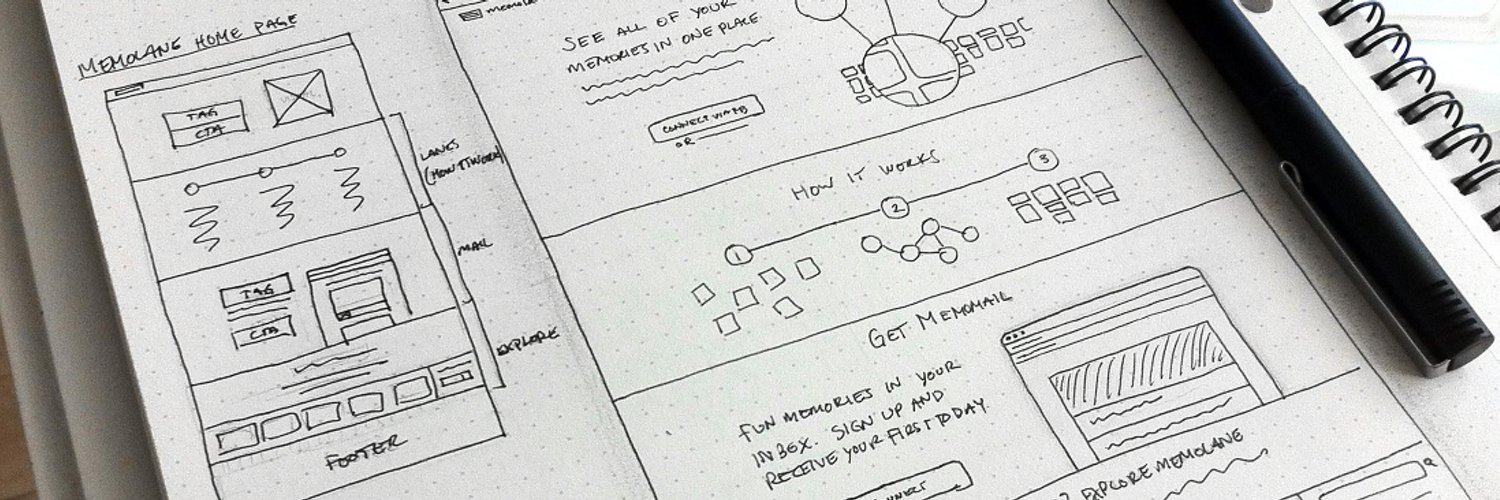 MEMOLANE HOME PAGE
TAG
CTA
LANES
(HOW IT WORKS)
MAIL
TAG
CTA
EXPLORE
FOOTER
SEE ALL OF YOUR
MEMORIES IN ONE PLACE
CONNECT VIA FB
OR
HOW IT WORKS
1
2
3
GET MEMOMAIL
FUN MEMORIES IN YOUR
INBOX. SIGN UP AND
RECEIVE YOUR FIRST TODAY.
EXPLORE MEMOLANE